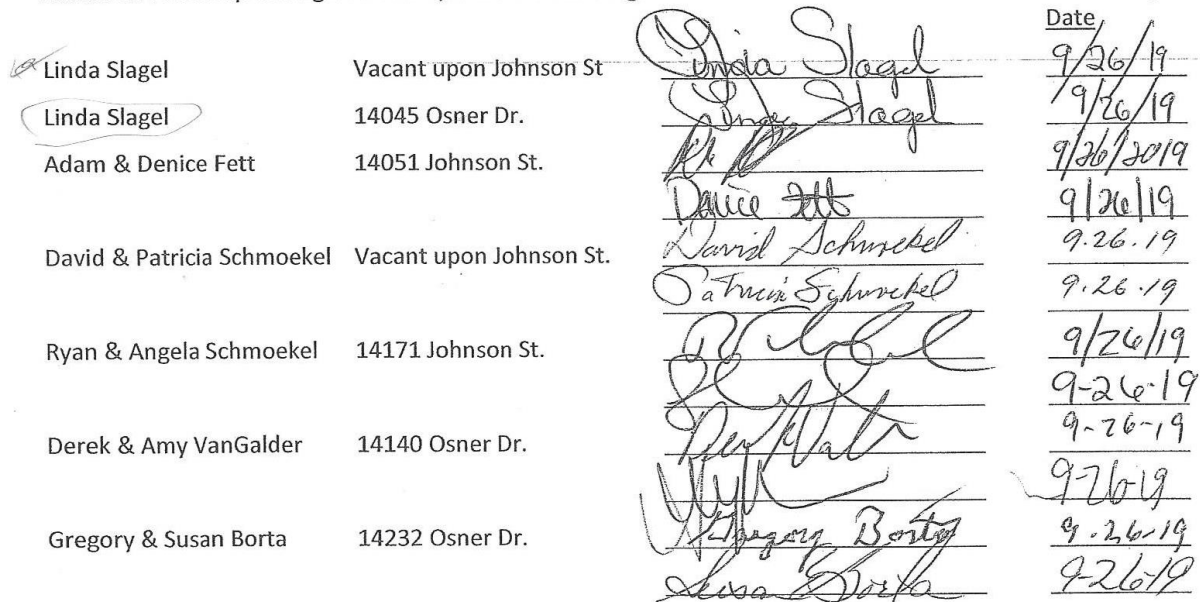 Date
Linda Slagel Vacant upon Johnson St Linda Slagel 9/26/19
Linda Slagel 14045 Osner Dr. Linda Slagel 9/26/19
Adam & Denice Fett 14051 Johnson St. 9/26/2019
Denice Fett 9/26/19
David & Patricia Schmoekel Vacant upon Johnson St. David Schmoekel 9.26.19
Patricia Schmoekel 9.26.19
Ryan & Angela Schmoekel 14171 Johnson St. 9/26/19
9-26-19
Derek & Amy VanGalder 14140 Osner Dr. 9-26-19
9-26-19
Gregory & Susan Borta 14232 Osner Dr. Gregory Borta 9.26-19
Susan Borta 9-26-19